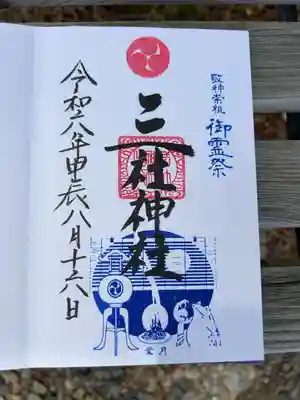 敬神崇祖
御霊祭
三社神社
葉月
令和六年甲辰八月十六日